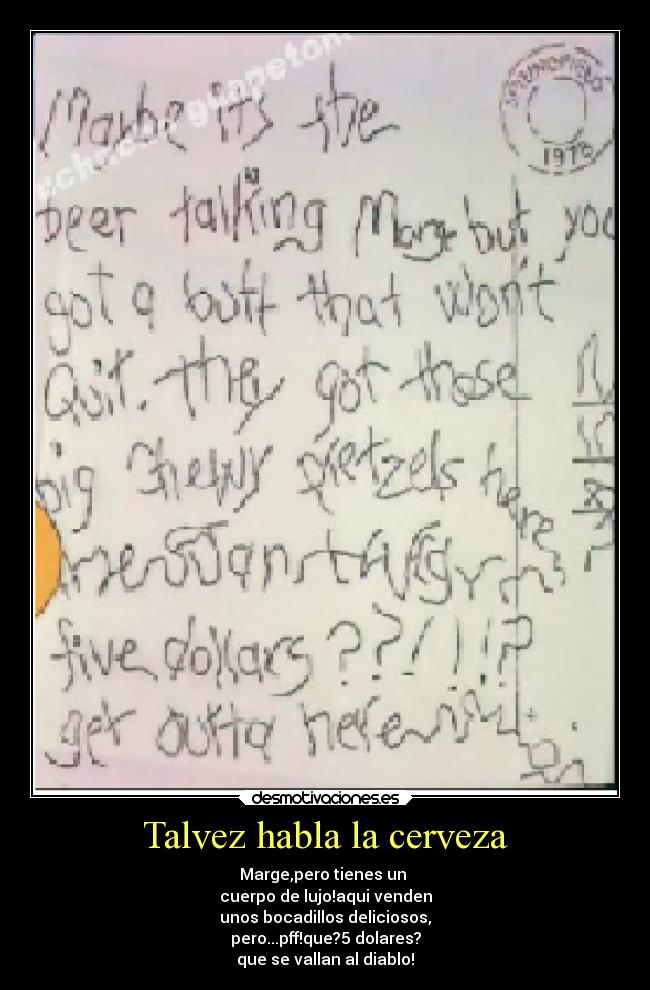 Maybe its the
beer talking Marge but you
got a butt that won't
Quit. they got those
big chewy pretzels here
five dollars??!!!?
get outta here
1979
desmotivaciones.es
Talvez habla la cerveza
Marge,pero tienes un
cuerpo de lujo!aqui venden
unos bocadillos deliciosos,
pero...pff!que?5 dolares?
que se vallan al diablo!